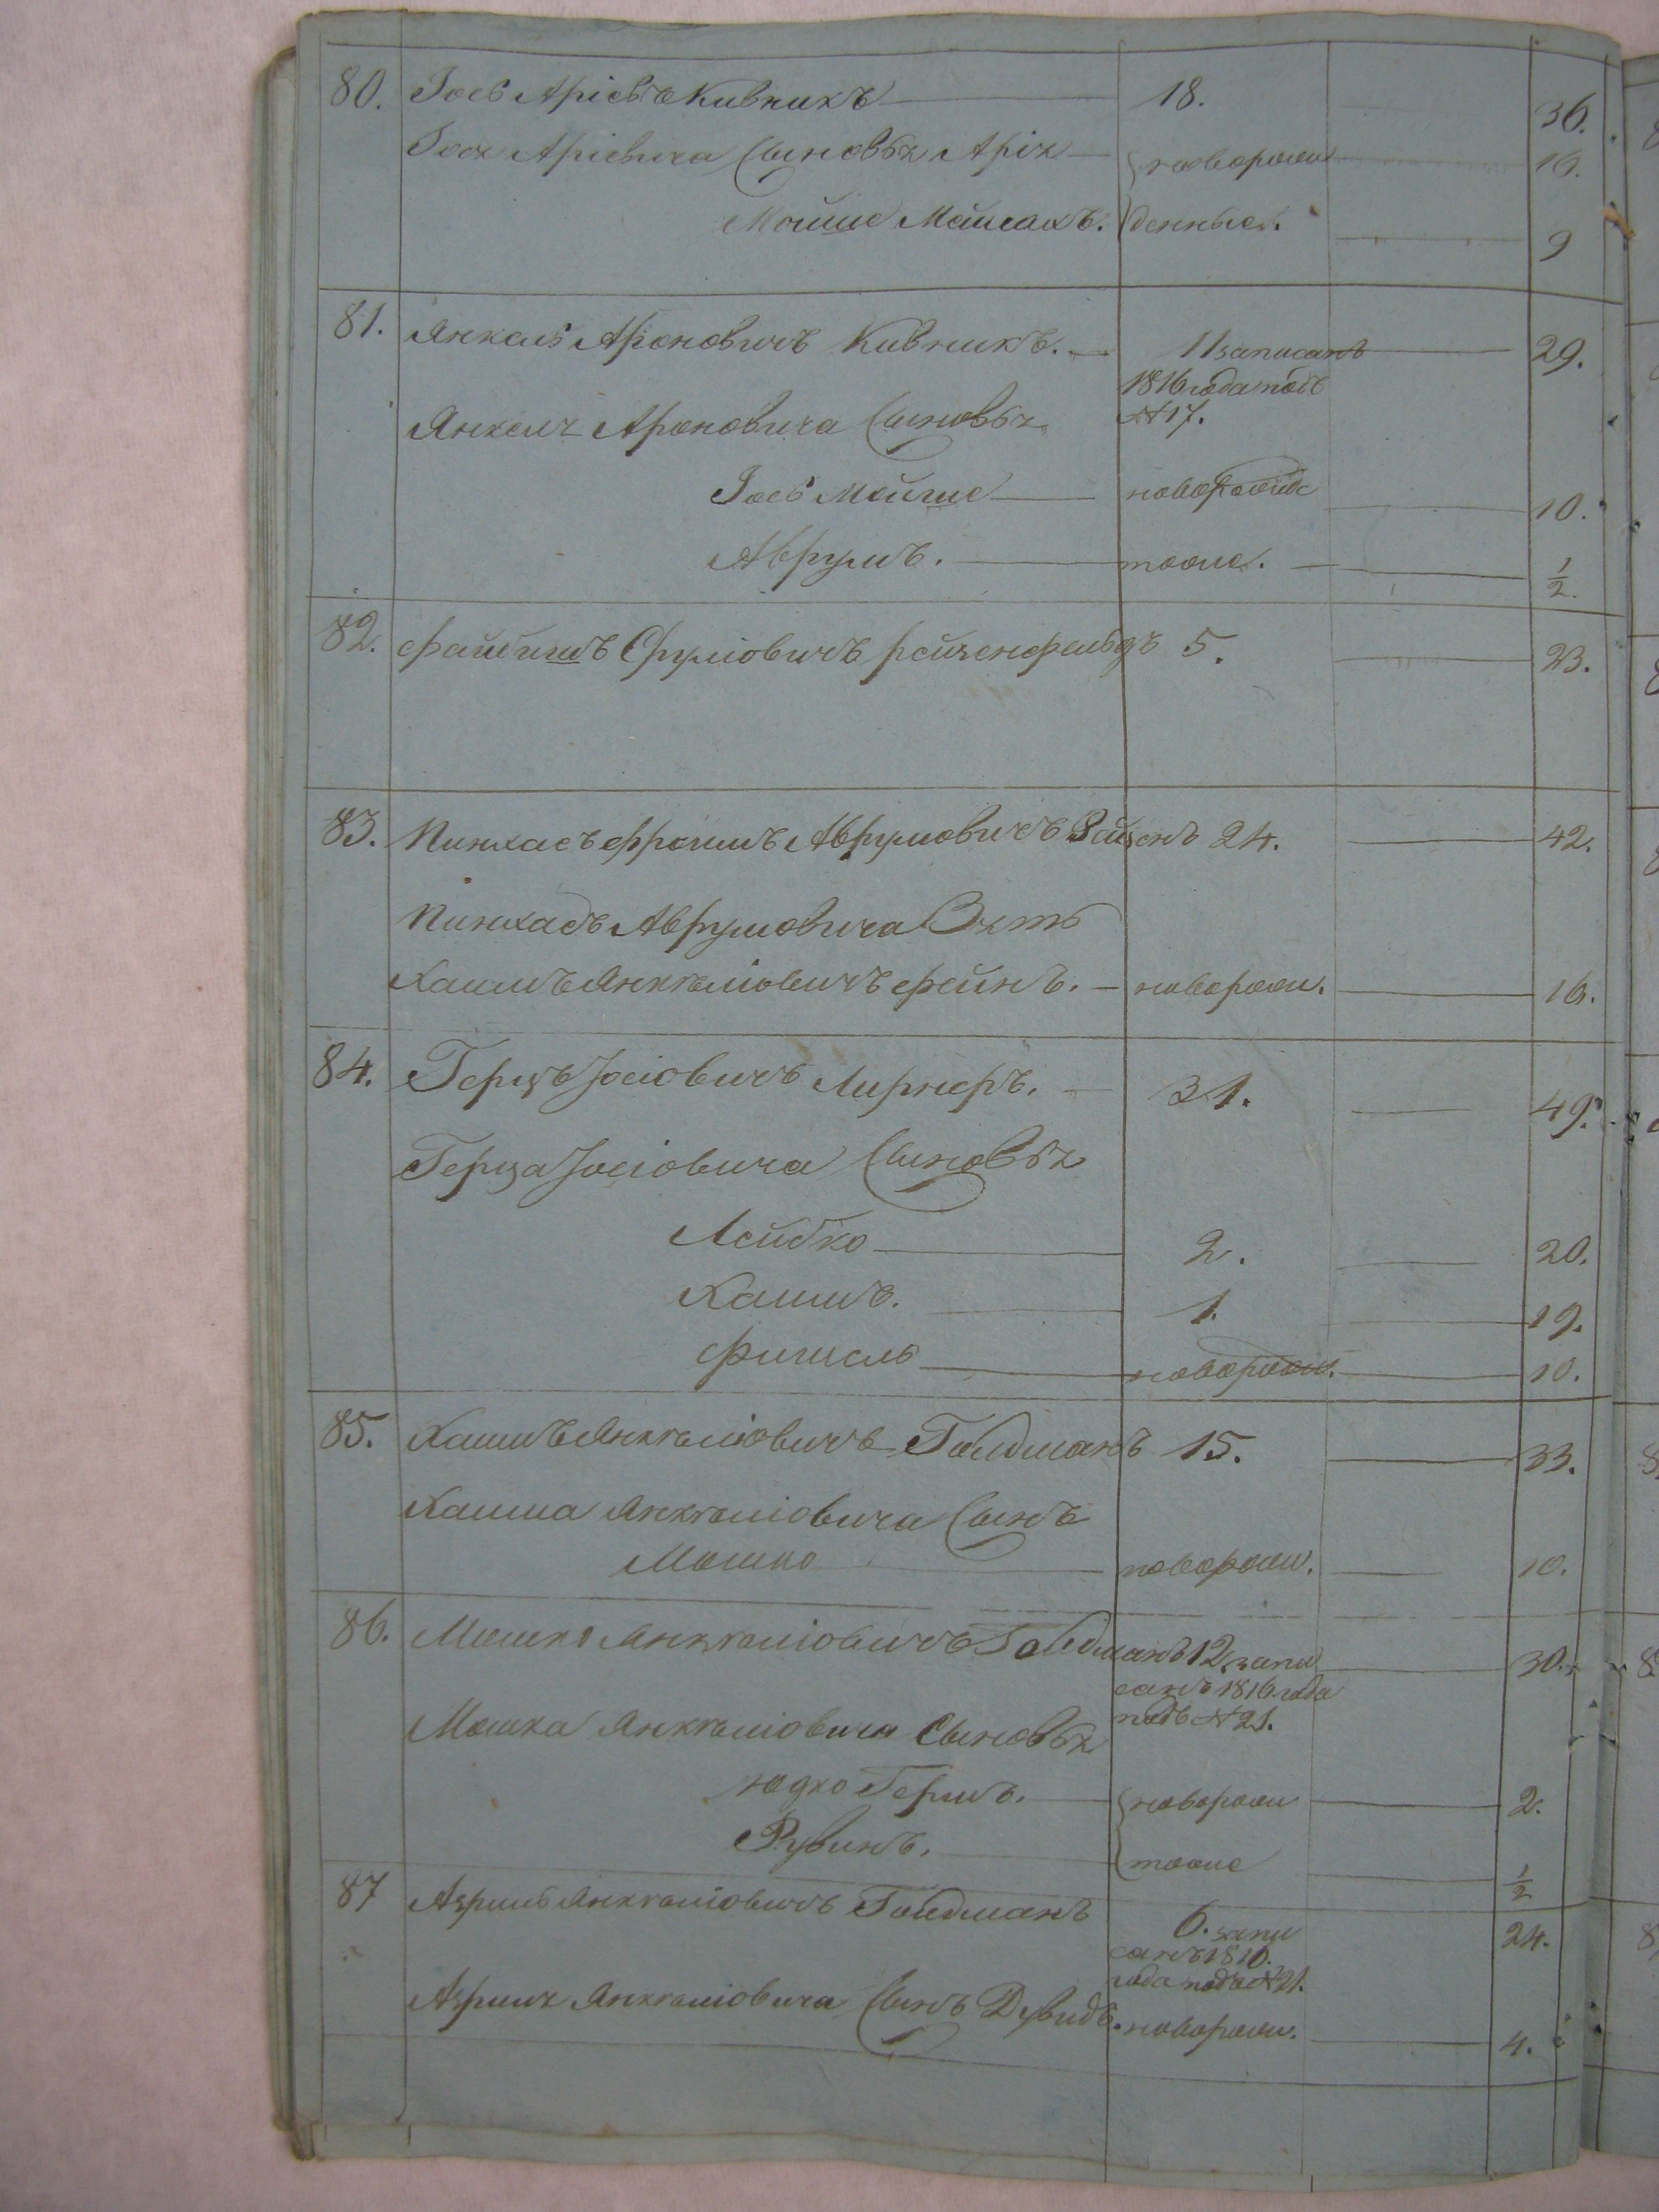 80. Іось Аріевъ Кивникъ 18. 36.
Іося Аріевича Сыновья Арія новорож 16.
Мойше Мойсахъ. денные. 9
81. Янкель Ароновичъ Кивникъ. 11 записанъ 29.
1816 года подъ
Янкеля Ароновича Сыновья №17.
Іось Мойше новорожде 10.
Аврумъ. тоже. 1/2.
82. Файвишъ Сруліовичъ Рейзенфельдъ 5. 23.
83. Пинхасъ Фроимъ Аврумовичъ 24. 42.
Пинхасъ Аврумовича Зять
Хаимъ Янкеліовичъ Фейнъ. новорож. 16.
84. Герцъ Іосіовичъ Лирнеръ. 31. 49.
Герца Іосіовича Сыновья
Лейбко 2. 20.
Хаимъ. 1. 19.
Фишель новорож. 10.
85. Хаимъ Янкеліовичъ Голдманъ 15. 33.
Хаима Янкеліовича Сынъ
Мошко новорож. 10.
86. Мошко Янкеліовичъ Голдманъ 12 запи 30.
санъ 1816 года
Мошка Янкеліовича Сыновья подъ №21.
Юдко Герш. новорож 2.
Рувинъ. тоже 1/2
87 Азриль Янкеліовичъ Голдманъ 6. запи 24.
санъ 1816.
года подъ №21.
Азриля Янкеліовича Сынъ Дувидъ. новорож. 4.